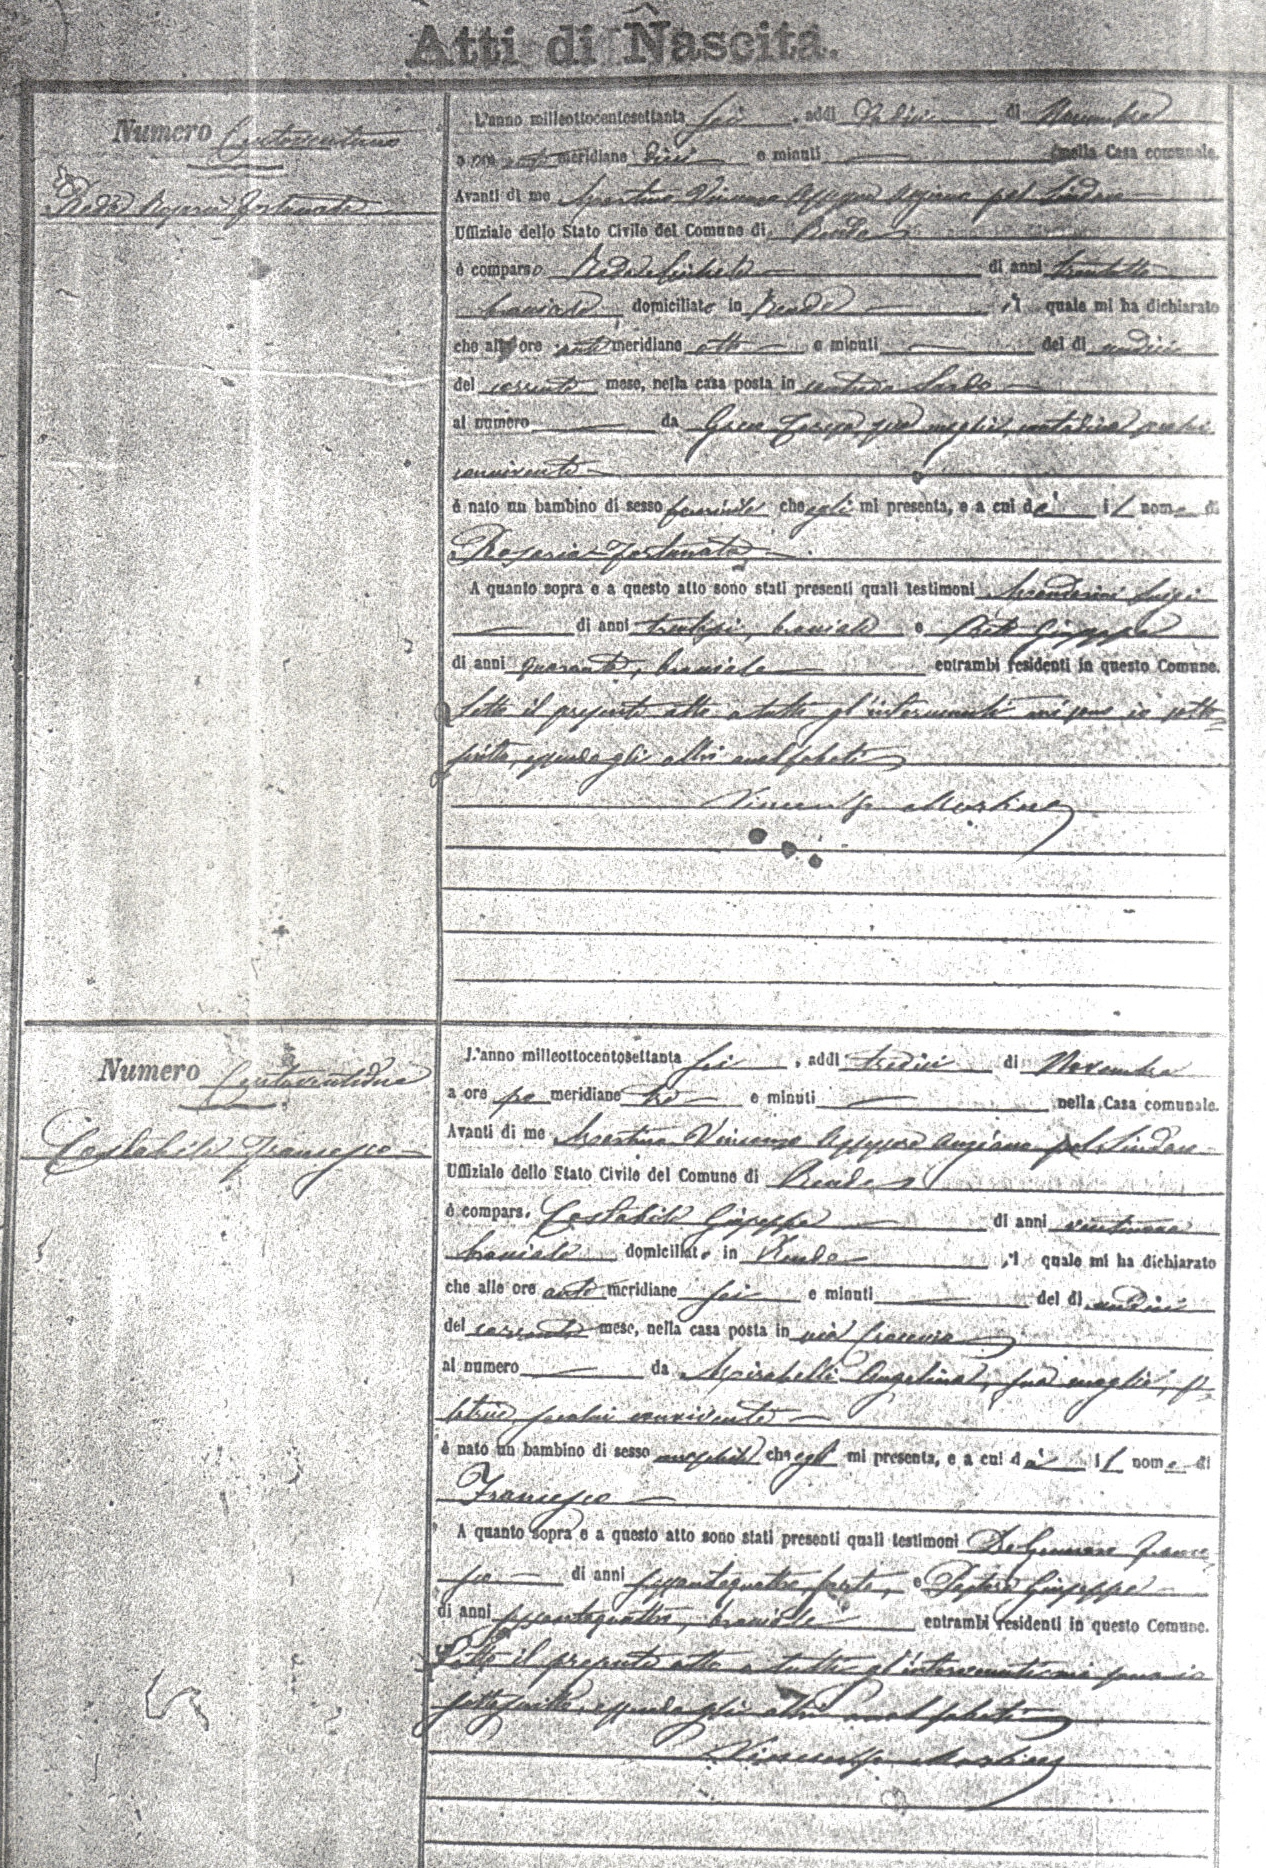 Atti di Nascita.
Numero Centoventuno
Rosaria Fortunata
L'anno milleottocentosettanta sei, addì di Novembre
a ore anti meridiane dieci e minuti nella Casa comunale.
Avanti di me Martino Vincenzo Assessore Anziano pel Sindaco
Uffiziale dello Stato Civile del Comune di Rende
è comparso di anni trentotto
bracciale domiciliato in Rende il quale mi ha dichiarato
che alle ore anti meridiane otto e minuti del dì undici
del corrente mese, nella casa posta in contrada
al numero da Greco Teresa sua moglie, contadina seco lui
convivente
è nato un bambino di sesso femminile che egli mi presenta, e a cui dà il nome di
Rosaria Fortunata
A quanto sopra e a questo atto sono stati presenti quali testimoni Luigi
di anni bracciale e Giuseppe
di anni quaranta, bracciale entrambi residenti in questo Comune.
Letto il presente atto a tutti gl'intervenuti mi sono io sotto
scritto, essendo gli altri analfabeti
Vincenzo Martino
Numero Centoventidue
Costabile Francesco
L'anno milleottocentosettanta sei, addì tredici di Novembre
a ore po meridiane tre e minuti nella Casa comunale.
Avanti di me Martino Vincenzo Assessore Anziano pel Sindaco
Uffiziale dello Stato Civile del Comune di Rende
è compars. Costabile Giuseppe di anni ventinove
bracciale domiciliato in Rende il quale mi ha dichiarato
che alle ore anti meridiane sei e minuti del dì undici
del corrente mese, nella casa posta in via
al numero da Mirabelli Angelina, sua moglie, fi
latrice, seco lui convivente
è nato un bambino di sesso maschile che egli mi presenta, e a cui dà il nome di
Francesco
A quanto sopra e a questo atto sono stati presenti quali testimoni De Gennaro France
sco di anni sessantaquattro, sarto, e Giuseppe
di anni sessantaquattro, bracciale entrambi residenti in questo Comune.
Letto il presente atto a tutti gl'intervenuti mi sono io
sottoscritto, essendo gli altri analfabeti
Vincenzo Martino